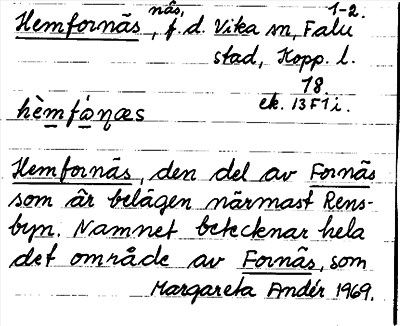 näs, 1-2.
Hemfornäs, f. d. Vika sn, Falu
stad, Kopp. l.
18.
ek. 13F1i.
hèmfɷ́ɳæs
Hemfornäs, den del av Fornäs
som är belägen närmast Rens-
byn. Namnet betecknar hela
det område av Fornäs, som
Margareta Andér 1969.